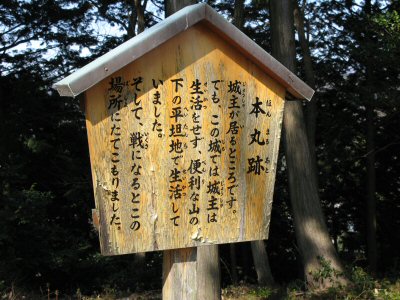 本丸跡
城主が居るところです。
でも、この城では城主は
生活をせず、便利な山の
下の平坦地で生活して
いました。
そして、戦になるとこの
場所にたてこもりました。